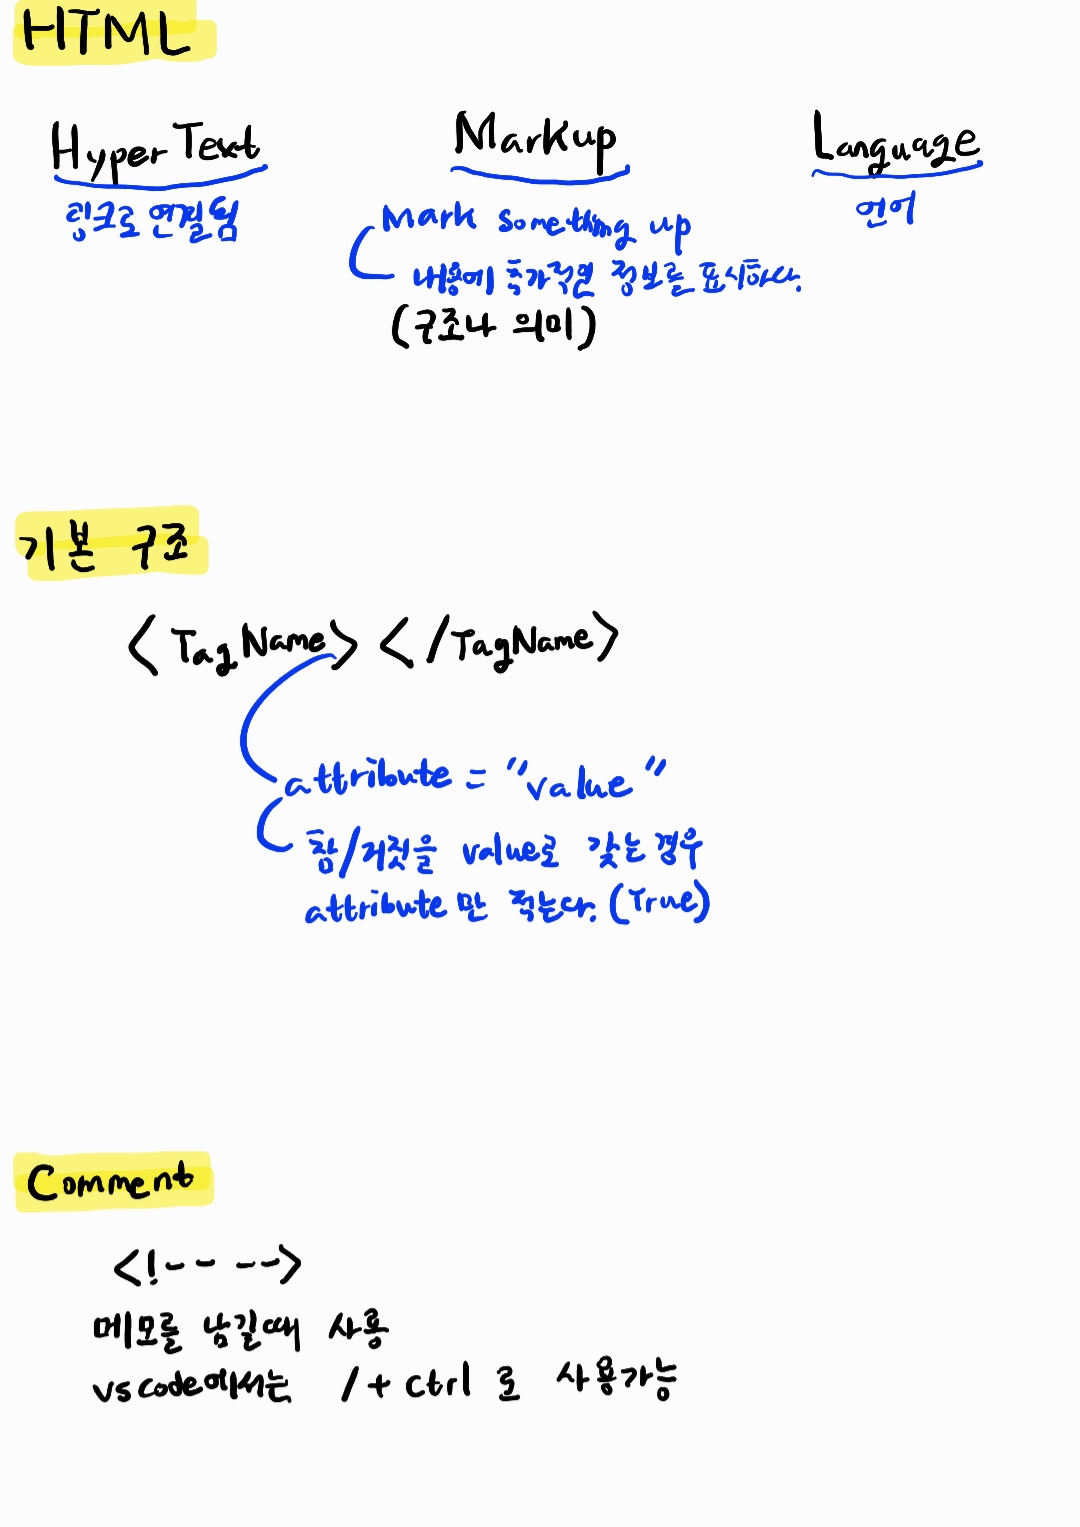 HTML
HyperText Markup Language
링크로 연결됨 Mark something up 언어
내용에 추가적인 정보를 표시하다.
(구조나 의미)
기본 구조
<TagName> </TagName>
attribute = "value"
참/거짓을 value로 갖는 경우
attribute만 적는다. (True)
Comment
<!-- -->
메모를 남길때 사용
vscode에서는 /+ctrl로 사용가능